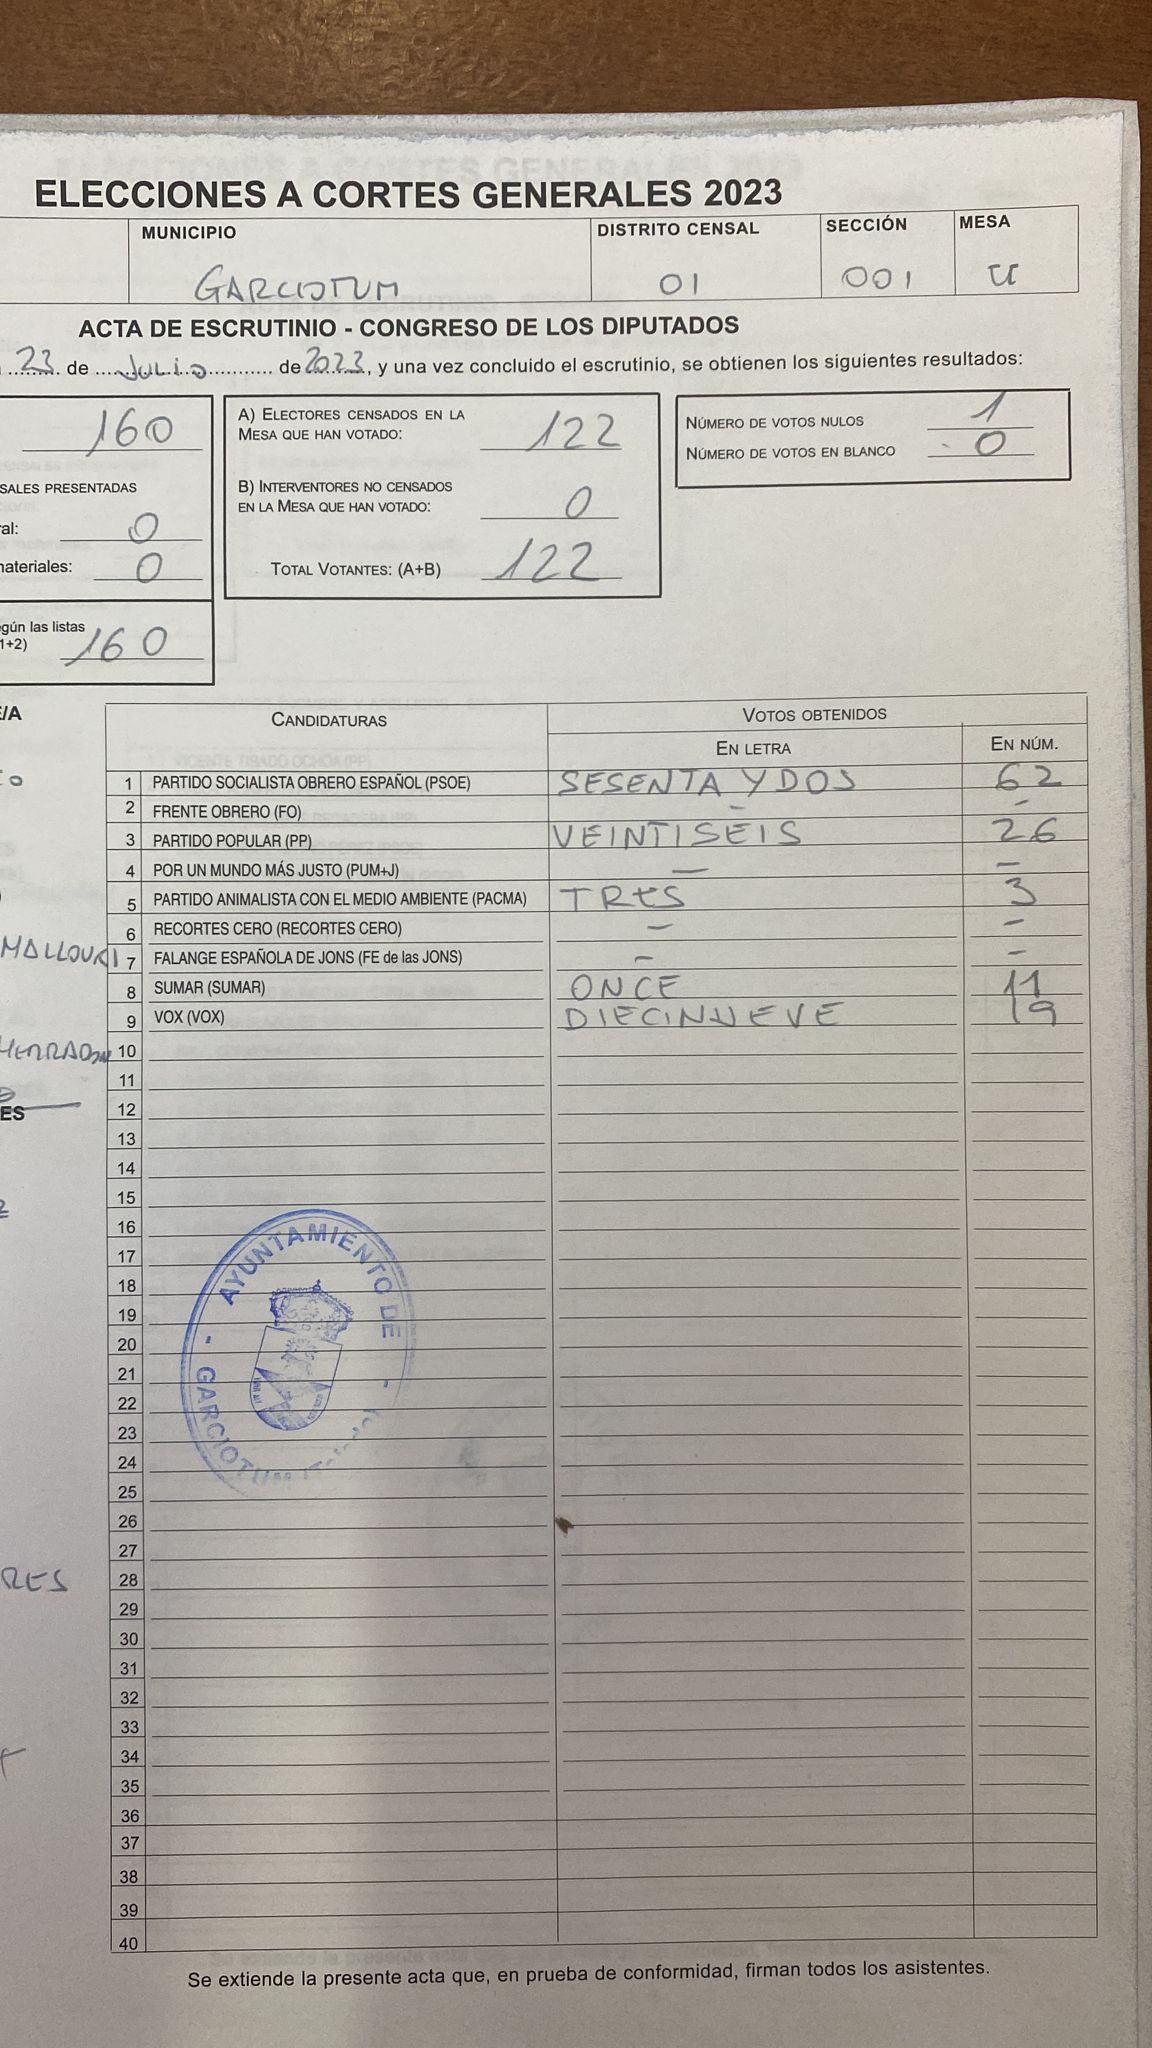 ELECCIONES A CORTES GENERALES 2023
MUNICIPIO DISTRITO CENSAL SECCIÓN MESA
GARCIOTUM 01 001 U
ACTA DE ESCRUTINIO - CONGRESO DE LOS DIPUTADOS
23 de Julio de 2023, y una vez concluido el escrutinio, se obtienen los siguientes resultados:
160
SALES PRESENTADAS
ral: 0
materiales: 0
egún las listas
1+2) 160
A) ELECTORES CENSADOS EN LA
MESA QUE HAN VOTADO: 122
B) INTERVENTORES NO CENSADOS
EN LA MESA QUE HAN VOTADO: 0
TOTAL VOTANTES: (A+B) 122
NÚMERO DE VOTOS NULOS 1
NÚMERO DE VOTOS EN BLANCO 0
E/A
MALLOUKI
HERRADON
ES
RES
CANDIDATURAS VOTOS OBTENIDOS
EN LETRA EN NÚM.
1 PARTIDO SOCIALISTA OBRERO ESPAÑOL (PSOE) SESENTA Y DOS 62
2 FRENTE OBRERO (FO) - -
3 PARTIDO POPULAR (PP) VEINTISEIS 26
4 POR UN MUNDO MÁS JUSTO (PUM+J) - -
5 PARTIDO ANIMALISTA CON EL MEDIO AMBIENTE (PACMA) TRES 3
6 RECORTES CERO (RECORTES CERO) - -
7 FALANGE ESPAÑOLA DE JONS (FE de las JONS) - -
8 SUMAR (SUMAR) ONCE 11
9 VOX (VOX) DIECINUEVE 19
10
11
12
13
14
15
16
17
18
19
20
21
22
23
24
25
26
27
28
29
30
31
32
33
34
35
36
37
38
39
40
AYUNTAMIENTO DE
GARCIOTUM
Se extiende la presente acta que, en prueba de conformidad, firman todos los asistentes.